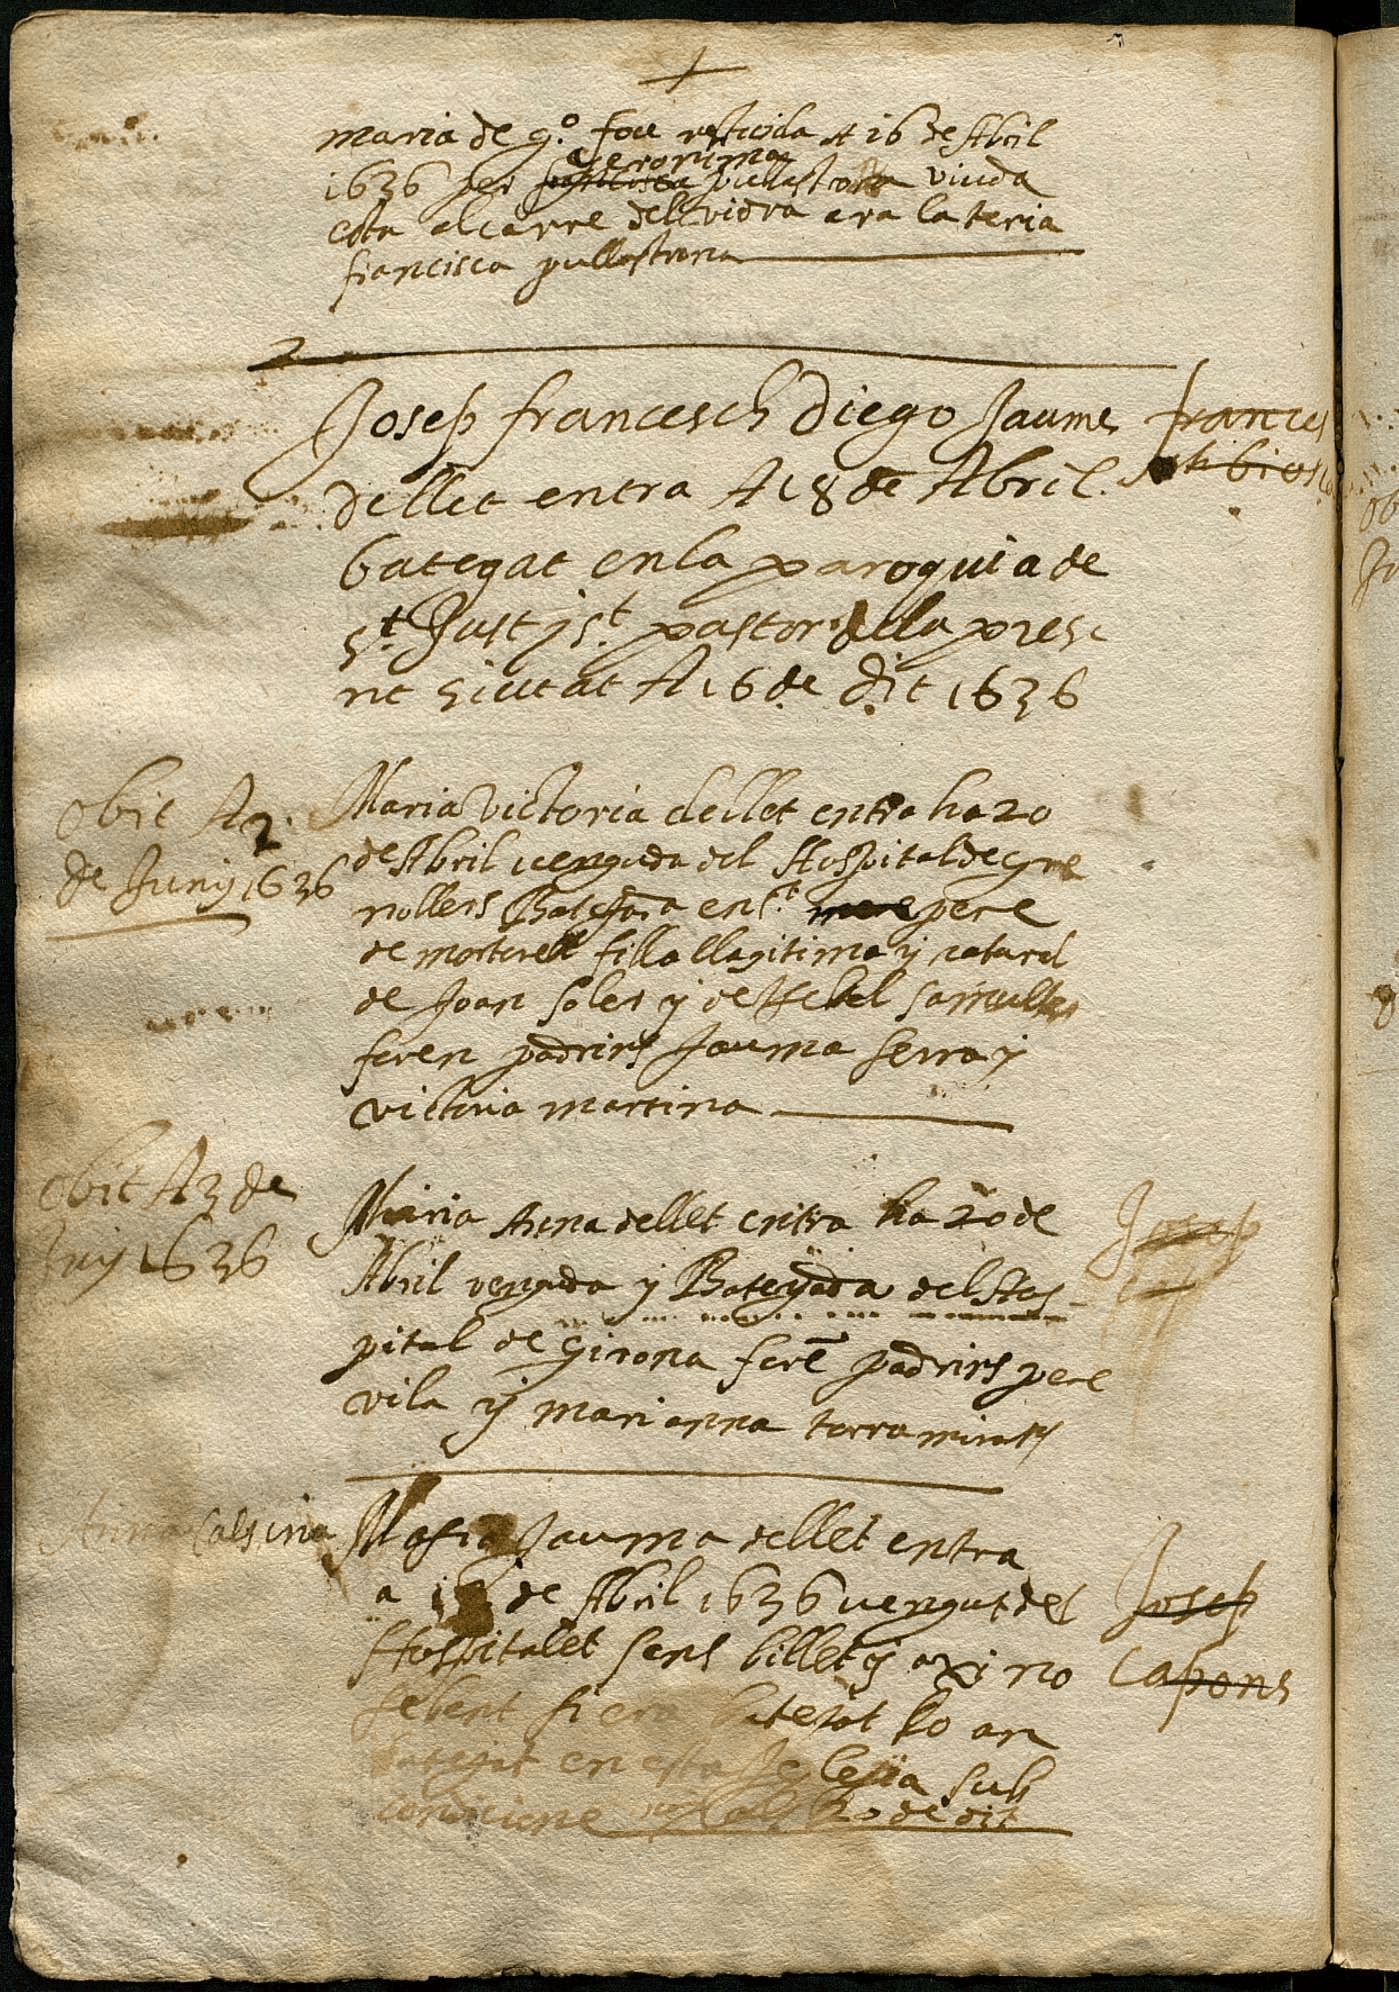 maria de g.º fou restituida A 16 de Abril
Geronima
1636 per pullastra viuda
esta al carre del vidra a ra la teria
francisca pullastrana
Josep francesch Diego Jaume
frances
dellet entra A 18 de Abril.
bategat en la paroquia de
St. Just y St. pastor de la prese
nt siutat A 16 de dit 1636
obit A 2
de Juny 1636
Maria Victoria dellet entra ha 20
de Abril venguda del Hospital de Gra
nollers Batejada en St. pere
de mortorell filla llagitima y natural
de Joan Soler y de
foren padrins Jauma Serra y
victoria martina
obit A 3 de
Juny 1636
Maria Anna dellet entra ha 20 de
Josep
Abril venguda y Bategada del Hos-
pital de Girona fore padrins pere
vila y marianna torramirans
Anna Calsina
Jauma dellet entra
a de Abril 1636 vengut del
Josep
Hospitalet sens billet y axi no
Capons
sebent si era batejat lo an
bategat en esta Iglesia sub
condicione vuy als 20 de dit